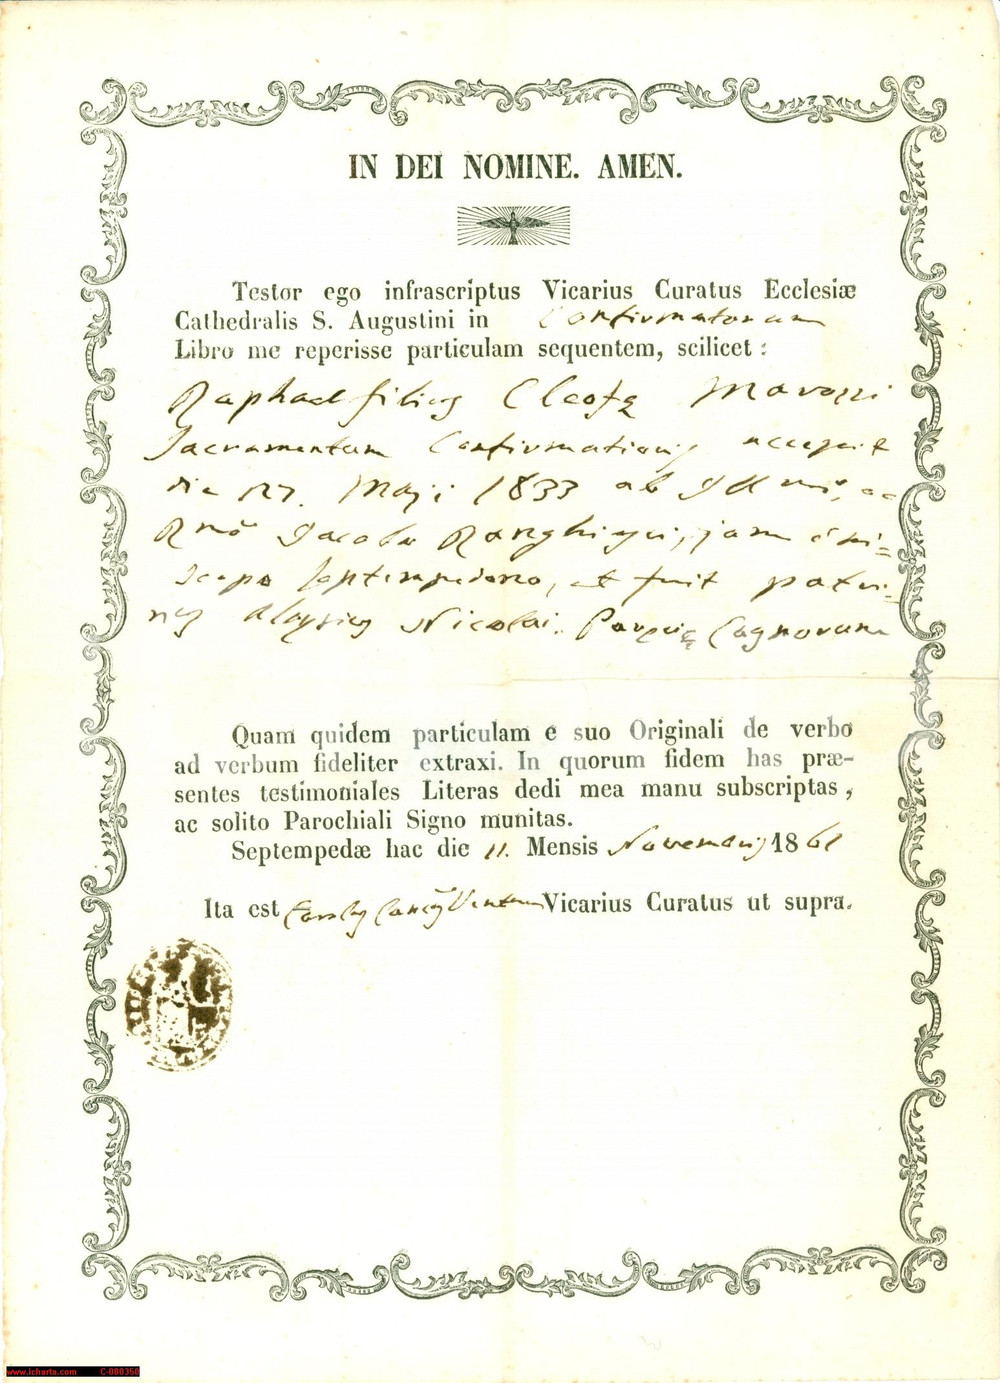 IN DEI NOMINE. AMEN.
Testor ego infrascriptus Vicarius Curatus Ecclesiæ
Cathedralis S. Augustini in Confirmatorum
Libro me reperisse particulam sequentem, scilicet:
Raphael filius Cleofę Marozzi
Sacramentum Confirmationis accepit
die 27. Maji 1833 ab Illmõ, ac
Rmõ Jacobo Ranghiasci, jam Epi=
scopo Septempedano, et fuit patri=
nus Aloysius Nicolai. Parocię Cagnorum
Quam quidem particulam e suo Originali de verbo
ad verbum fideliter extraxi. In quorum fidem has præ-
sentes testimoniales Literas dedi mea manu subscriptas,
ac solito Parochiali Signo munitas.
Septempedæ hac die 11. Mensis Novembris 1861
Ita est Vicarius Curatus ut supra.
www.icharta.com C-080350